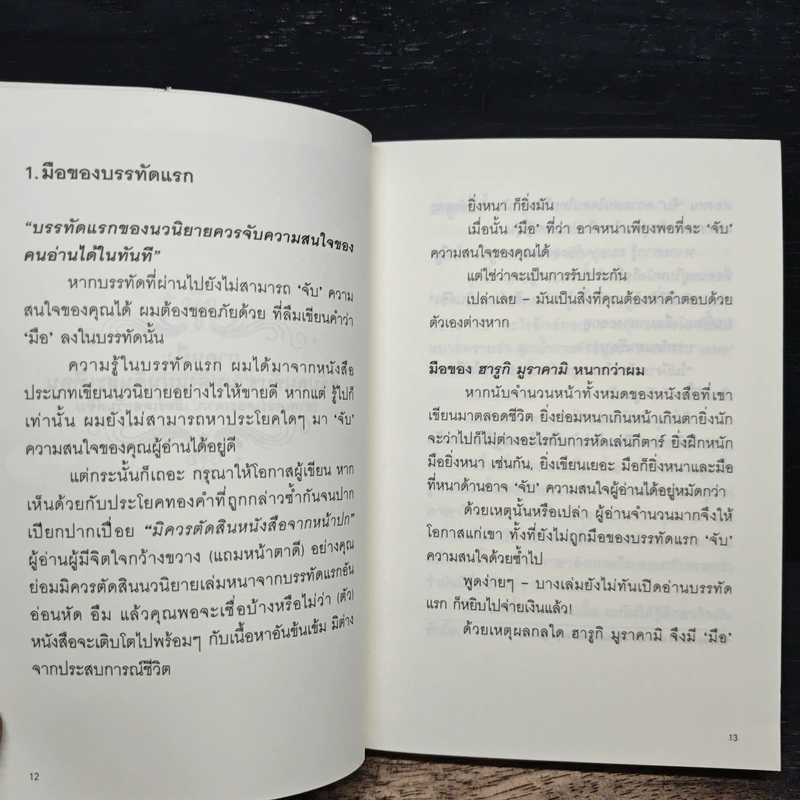 1. มือของบรรทัดแรก
“บรรทัดแรกของนวนิยายควรจับความสนใจของ
คนอ่านได้ในทันที”
หากบรรทัดที่ผ่านไปยังไม่สามารถ ‘จับ’ ความ
สนใจของคุณได้ ผมต้องขออภัยด้วย ที่ลืมเขียนคำว่า
‘มือ’ ลงในบรรทัดนั้น
ความรู้ในบรรทัดแรก ผมได้มาจากหนังสือ
ประเภทเขียนนวนิยายอย่างไรให้ขายดี หากแต่ รู้ไปก็
เท่านั้น ผมยังไม่สามารถหาประโยคใดๆ มา ‘จับ’
ความสนใจของคุณผู้อ่านได้อยู่ดี
แต่กระนั้นก็เถอะ กรุณาให้โอกาสผู้เขียน หาก
เห็นด้วยกับประโยคทองคำที่ถูกกล่าวซ้ำกันจนปาก
เปียกปากเปื่อย “มิควรตัดสินหนังสือจากหน้าปก”
ผู้อ่านผู้มีจิตใจกว้างขวาง (แถมหน้าตาดี) อย่างคุณ
ย่อมมิควรตัดสินนวนิยายเล่มหนาจากบรรทัดแรกอัน
อ่อนหัด อืม แล้วคุณพอจะเชื่อบ้างหรือไม่ว่า (ตัว)
หนังสือจะเติบโตไปพร้อมๆ กับเนื้อหาอันข้นเข้ม มิต่าง
จากประสบการณ์ชีวิต
12
ยิ่งหนา ก็ยิ่งมัน
เมื่อนั้น ‘มือ’ ที่ว่า อาจหนาเพียงพอที่จะ ‘จับ’
ความสนใจของคุณได้
แต่ใช่ว่าจะเป็นการรับประกัน
เปล่าเลย – มันเป็นสิ่งที่คุณต้องหาคำตอบด้วย
ตัวเองต่างหาก
มือของ ฮารูกิ มูราคามิ หนากว่าผม
หากนับจำนวนหน้าทั้งหมดของหนังสือที่เขา
เขียนมาตลอดชีวิต ยิ่งย่อมหนาเกินหน้าเกินตายิ่งนัก
จะว่าไปก็ไม่ต่างอะไรกับการหัดเล่นกีตาร์ ยิ่งฝึกหนัก
มือยิ่งหนา เช่นกัน, ยิ่งเขียนเยอะ มือก็ยิ่งหนาและมือ
ที่หนาด้านอาจ ‘จับ’ ความสนใจผู้อ่านได้อยู่หมัดกว่า
ด้วยเหตุนั้นหรือเปล่า ผู้อ่านจำนวนมากจึงให้
โอกาสแก่เขา ทั้งที่ยังไม่ถูกมือของบรรทัดแรก ‘จับ’
ความสนใจด้วยซ้ำไป
พูดง่ายๆ – บางเล่มยังไม่ทันเปิดอ่านบรรทัด
แรก ก็หยิบไปจ่ายเงินแล้ว!
ด้วยเหตุผลกลใด ฮารูกิ มูราคามิ จึงมี ‘มือ’
13